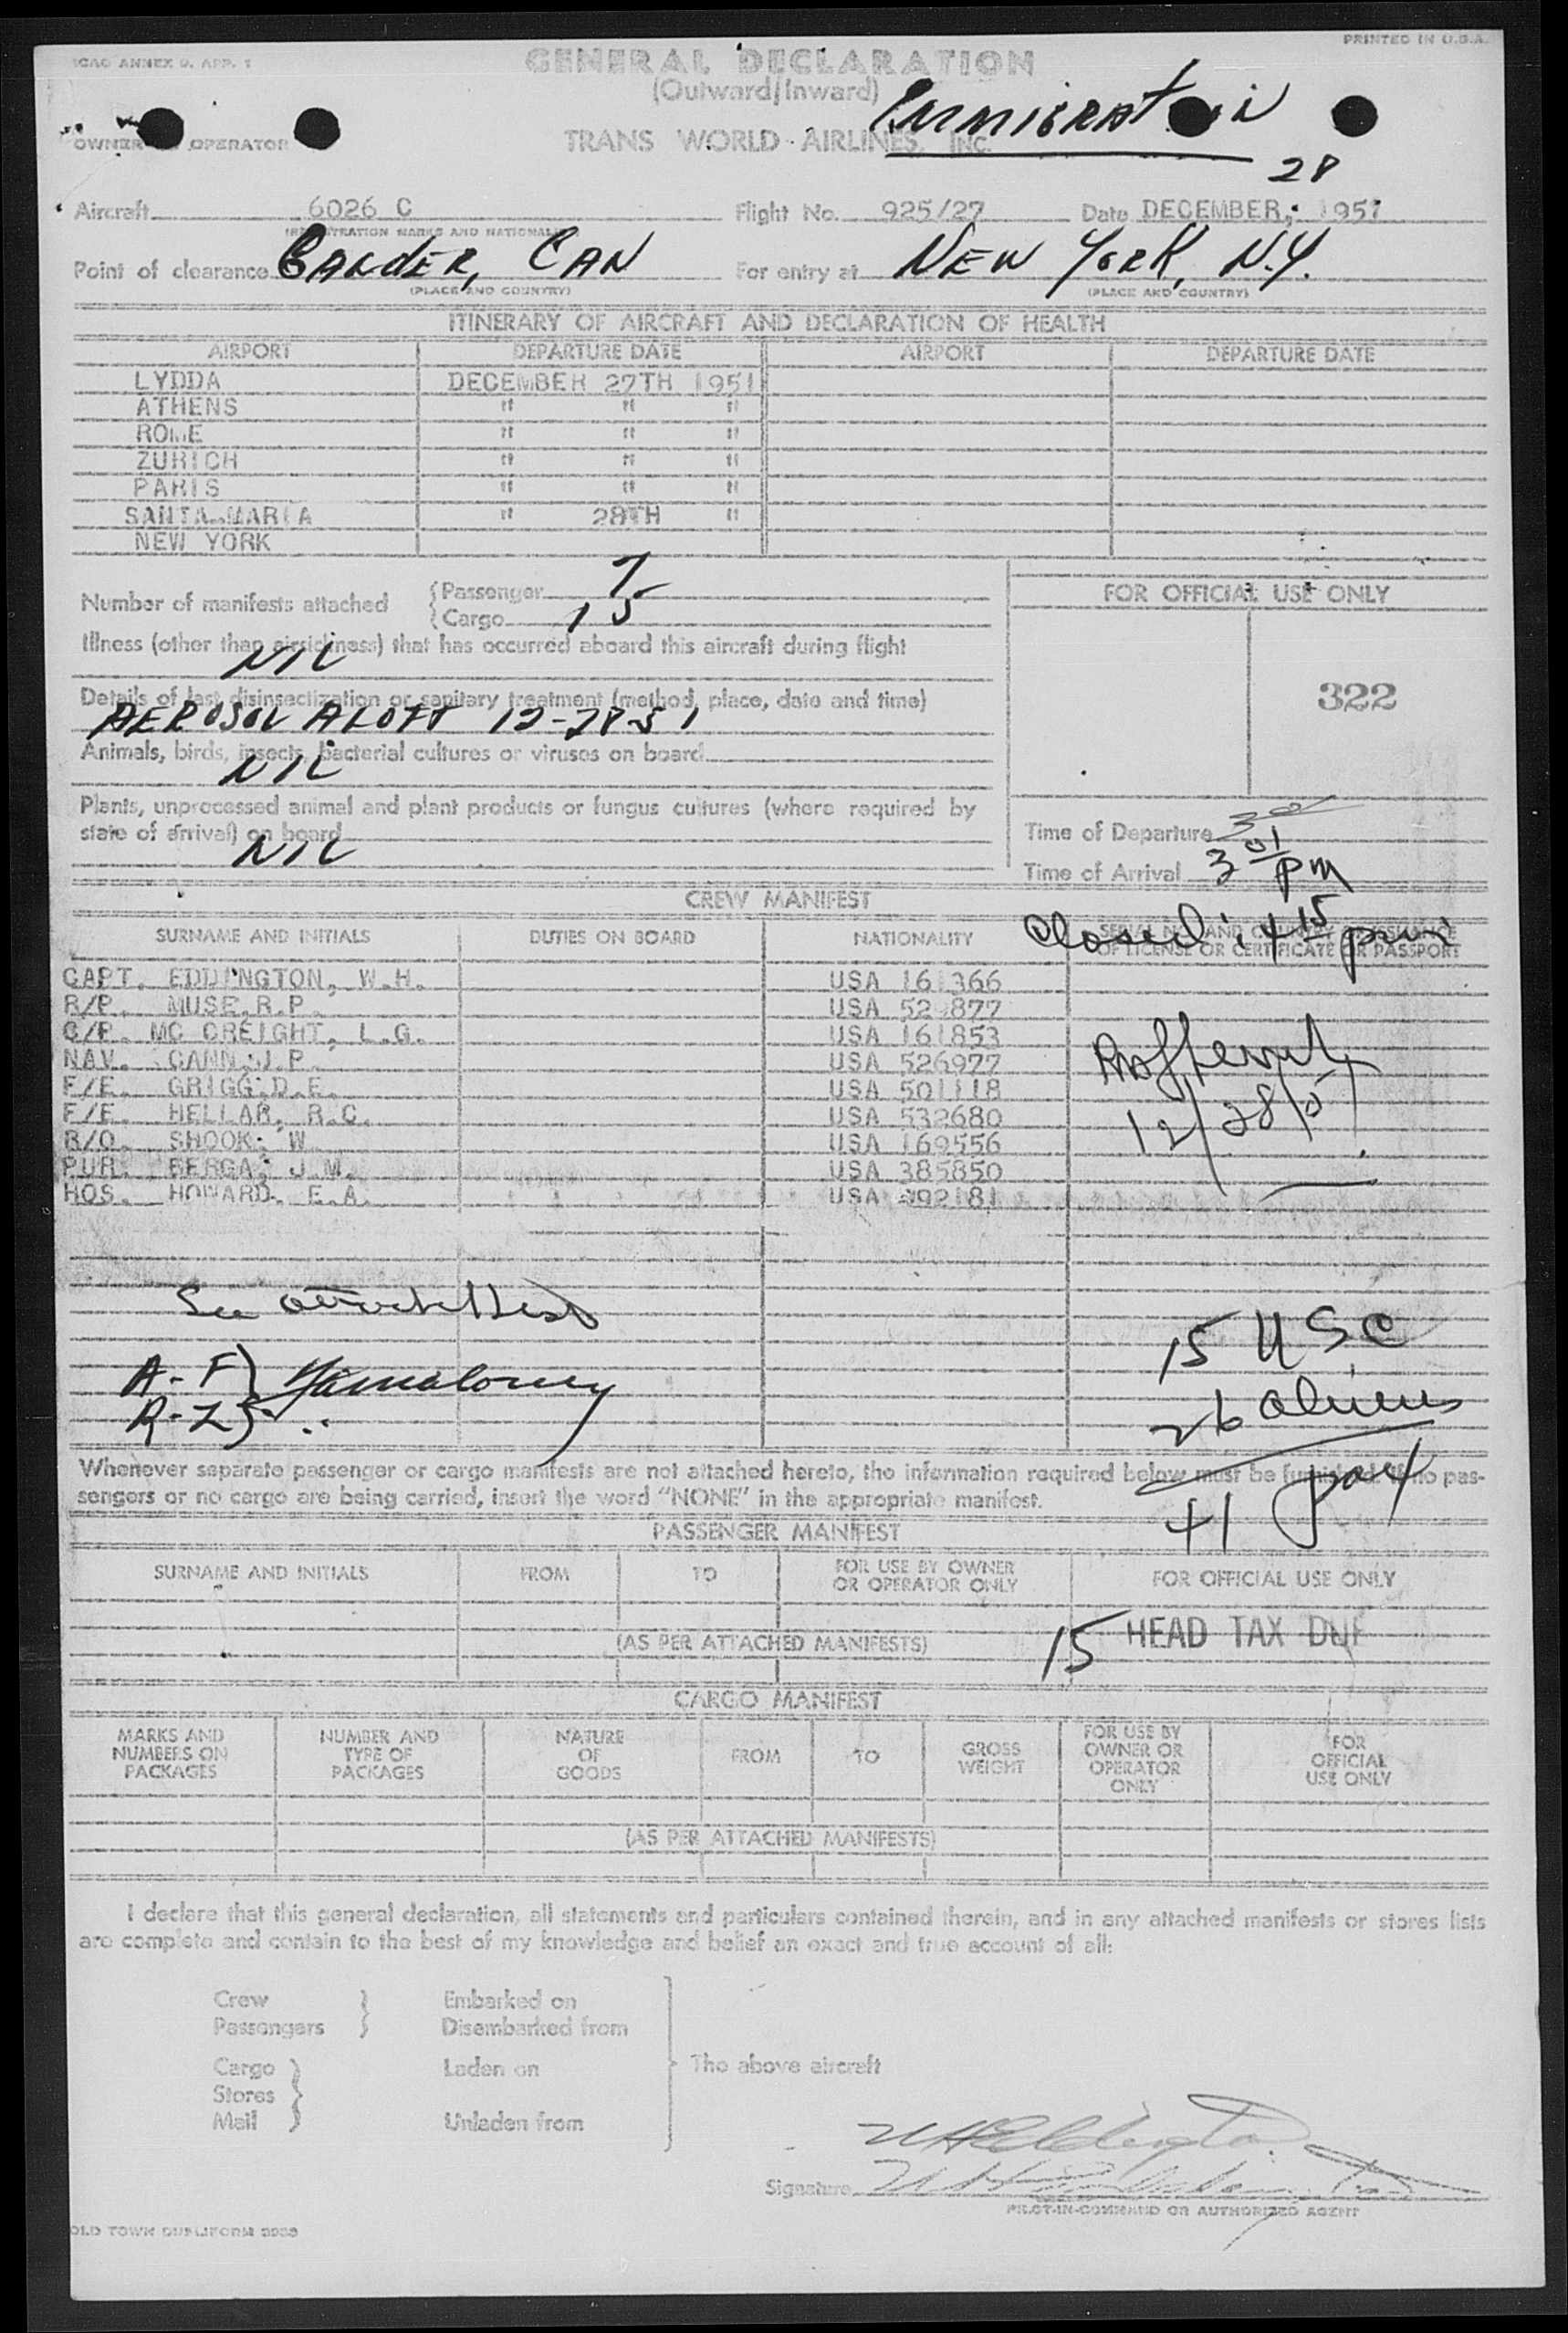 ICAO ANNEX 9, APP. 1
PRINTED IN U.S.A.
GENERAL DECLARATION
(Outward/Inward)
IMMIGRATION
OWNER OPERATOR
TRANS WORLD AIRLINES, INC.
28
Aircraft 6026 C Flight No. 925/27 Date DECEMBER, 1951
(REGISTRATION MARKS AND NATIONALITY)
Point of clearance GANDER, CAN For entry at NEW YORK, N.Y.
(PLACE AND COUNTRY) (PLACE AND COUNTRY)
ITINERARY OF AIRCRAFT AND DECLARATION OF HEALTH
AIRPORT DEPARTURE DATE AIRPORT DEPARTURE DATE
LYDDA DECEMBER 27TH 1951
ATHENS " " "
ROME " " "
ZURICH " " "
PARIS " " "
SANTA MARIA " 28TH "
NEW YORK
Number of manifests attached { Passenger 7
{ Cargo 15
FOR OFFICIAL USE ONLY
Illness (other than airsickness) that has occurred aboard this aircraft during flight
NIL
322
Details of last disinsectization or sanitary treatment (method, place, date and time)
AEROSOL ALOFT 12-28-51
Animals, birds, insects, bacterial cultures or viruses on board
NIL
Plants, unprocessed animal and plant products or fungus cultures (where required by
state of arrival) on board
NIL
Time of Departure
Time of Arrival 3 01 pm
CREW MANIFEST
Closed: 4 15 pm
SURNAME AND INITIALS DUTIES ON BOARD NATIONALITY SERIAL NO. AND COUNTRY OF ISSUANCE
OF LICENSE OR CERTIFICATE OR PASSPORT
CAPT. EDDINGTON, W.H. USA 161366
R/P. MUSE, R.P. USA 877
C/P. MC CREIGHT, L.G. USA 161853
NAV. CANN, J.P. USA 526977
F/E. GRIGG, D.E. USA 501118
F/E. HELLAR, R.C. USA 532680
R/O. SHOOK, W. USA 169556
PUR. BERGA, J.M. USA 385850
HOS. HOWARD, E.A. USA
12/28/51
See
A - F }
R - Z }
15 USC
26 aliens
41
Whenever separate passenger or cargo manifests are not attached hereto, the information required below must be furnished. If no pas-
sengers or no cargo are being carried, insert the word "NONE" in the appropriate manifest.
PASSENGER MANIFEST
SURNAME AND INITIALS FROM TO FOR USE BY OWNER OR OPERATOR ONLY FOR OFFICIAL USE ONLY
(AS PER ATTACHED MANIFESTS)
15 HEAD TAX DUE
CARGO MANIFEST
MARKS AND NUMBERS ON PACKAGES NUMBER AND TYPE OF PACKAGES NATURE OF GOODS FROM TO GROSS WEIGHT FOR USE BY OWNER OR OPERATOR ONLY FOR OFFICIAL USE ONLY
(AS PER ATTACHED MANIFESTS)
I declare that this general declaration, all statements and particulars contained therein, and in any attached manifests or stores lists
are complete and contain to the best of my knowledge and belief an exact and true account of all:
Crew } Embarked on
Passengers } Disembarked from
Cargo } Laden on The above aircraft
Stores }
Mail } Unladen from
Signature
PILOT-IN-COMMAND OR AUTHORIZED AGENT
OLD TOWN DUPLIFORM